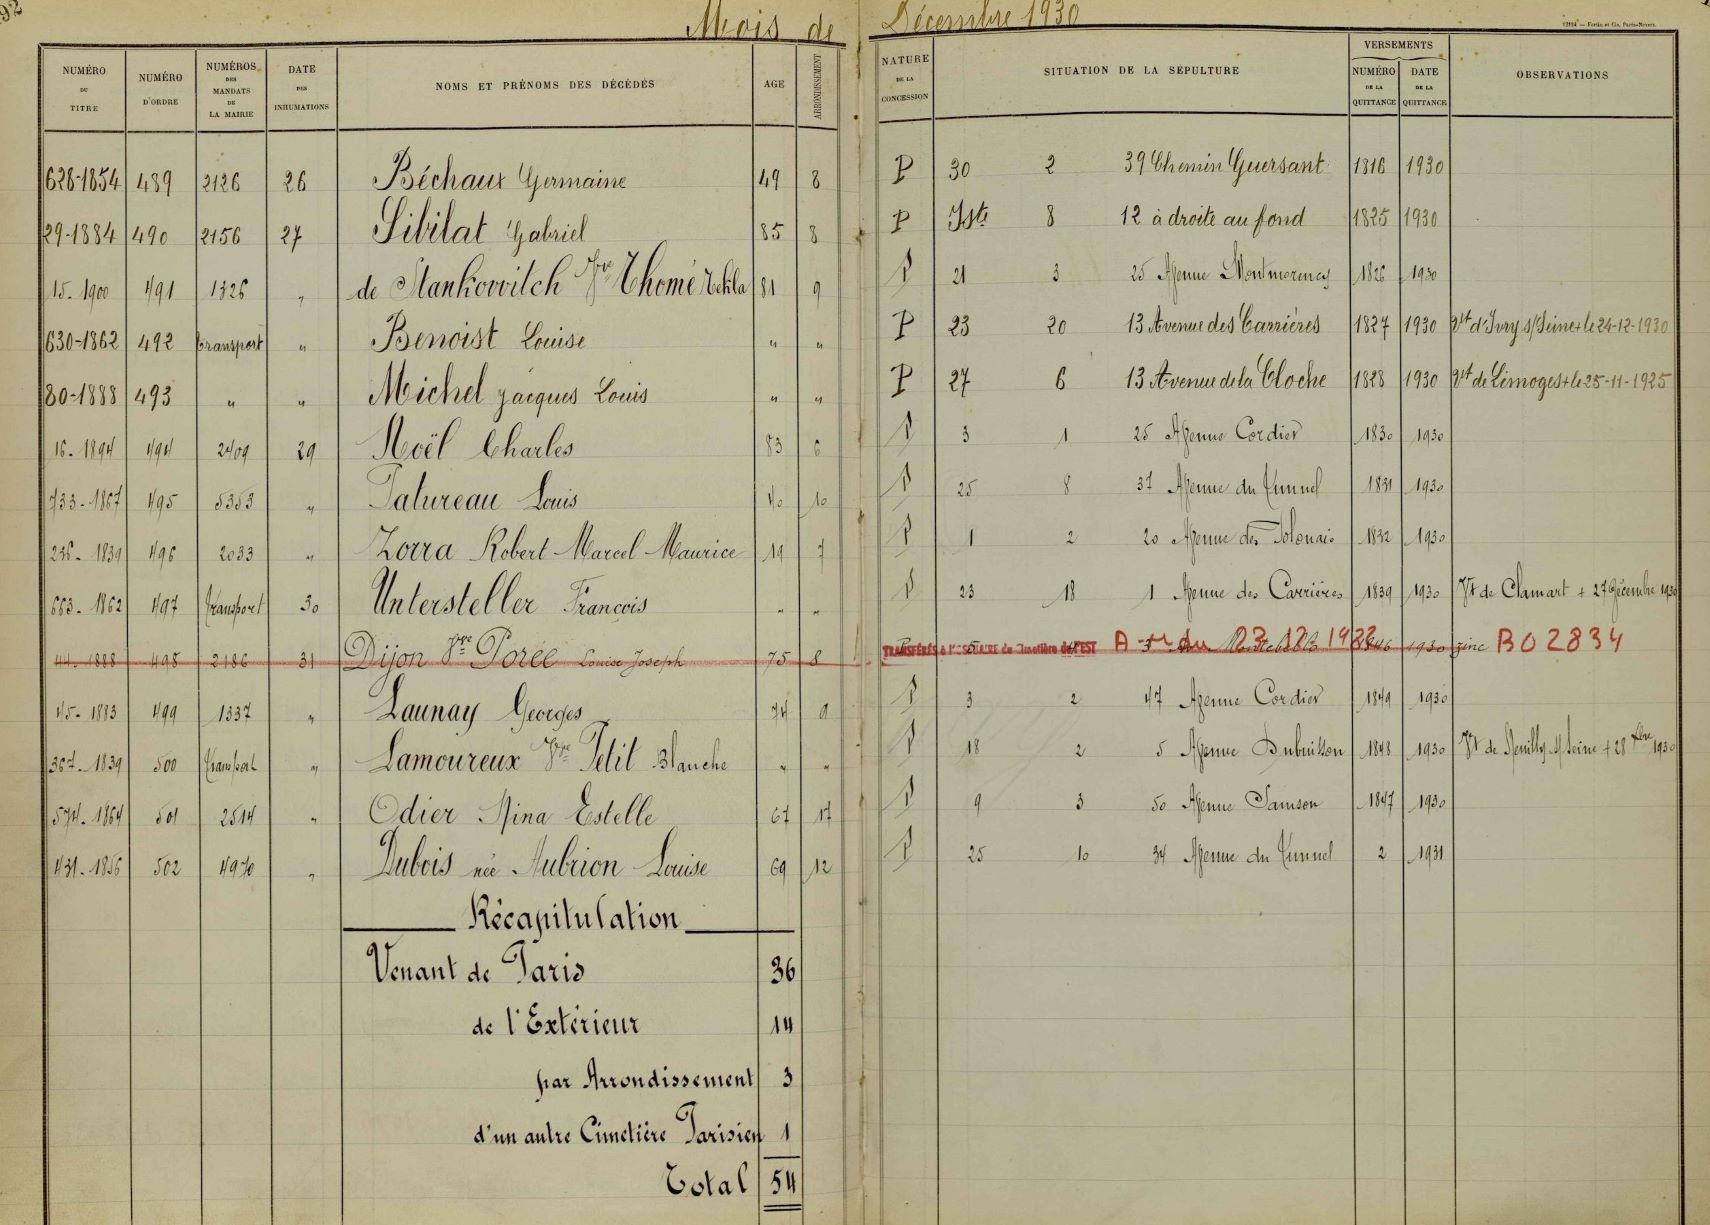 92
Mois de Décembre 1930
12124 — Fortin et Cie, Paris-Nevers.
NUMÉRO DU TITRE | NUMÉRO D'ORDRE | NUMÉROS DES MANDATS DE LA MAIRIE | DATE DES INHUMATIONS | NOMS ET PRÉNOMS DES DÉCÉDÉS | AGE | ARRONDISSEMENT | NATURE DE LA CONCESSION | SITUATION DE LA SÉPULTURE | VERSEMENTS | NUMÉRO DE LA QUITTANCE | DATE DE LA QUITTANCE | OBSERVATIONS
628-1854 489 2126 26 Béchaux Germaine 49 8 P 30 2 39 Chemin Guersant 1816 1930
29-1884 490 2156 27 Sibilat Gabriel 85 8 P Iste 8 12 à droite au fond 1825 1930
15-1900 491 1326 " de Stankovvitch Vve Thomé Tekla 81 9 P 21 3 25 Avenue Montmorency 1826 1930
630-1862 492 transport " Benoist Louise " " P 23 20 13 Avenue des Carrières 1827 1930 Vt d'Ivry s/Seine + le 24-12-1930
80-1888 493 " " Michel Jacques Louis " " P 27 6 13 Avenue de la Cloche 1828 1930 Vt de Limoges + le 25-11-1925
16-1894 494 2409 29 Noël Charles 83 6 P 3 1 25 Avenue Cordier 1830 1930
733-1867 495 5353 " Patureau Louis 40 10 P 25 8 37 Avenue du Tunnel 1831 1930
236-1839 496 2033 " Zorra Robert Marcel Maurice 19 7 P 1 2 20 Avenue des Polonais 1832 1930
663-1862 497 transport 30 Untersteller François " " P 23 18 1 Avenue des Carrières 1839 1930 Vt de Clamart + 27 Décembre 1930
44-1888 498 2186 31 Dijon Vve Porée Louise Joseph 75 8 TRANSFÉRÉS à l'OSSUAIRE du Cimetière de l'EST 1846 1930 zinc B02834
45-1883 499 1337 " Launay Georges 74 9 P 3 2 47 Avenue Cordier 1849 1930
367-1839 500 transport " Lamoureux Vve Petit Blanche " " P 18 2 5 Avenue Dubuisson 1848 1930 Vt de Neuilly s/Seine + 28 Xbre 1930
574-1864 501 2514 " Odier Nina Estelle 67 17 P 9 3 50 Avenue Samson 1847 1930
431-1856 502 4970 " Dubois née Aubrion Louise 69 12 P 25 10 34 Avenue du Tunnel 2 1931
Récapitulation
Venant de Paris 36
de l'Extérieur 14
par Arrondissement 3
d'un autre Cimetière Parisien 1
Total 54